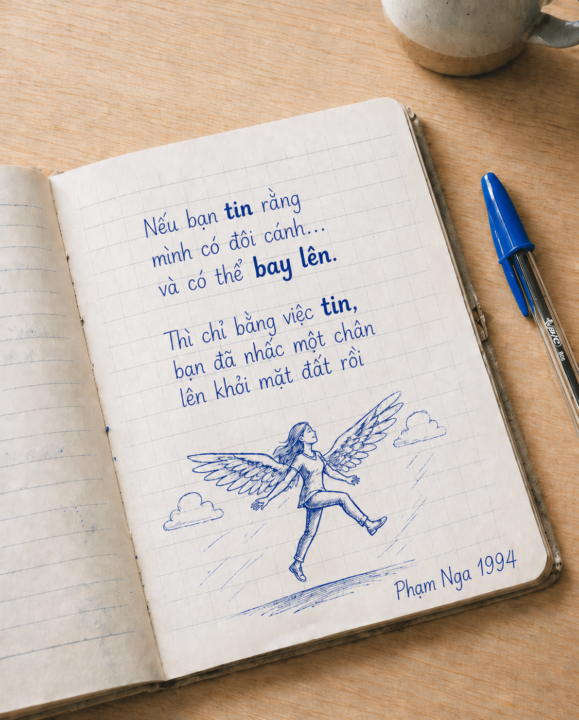 Nếu bạn tin rằng
mình có đôi cánh...
và có thể bay lên.
Thì chỉ bằng việc tin,
bạn đã nhấc một chân
lên khỏi mặt đất rồi
Phạm Nga 1994